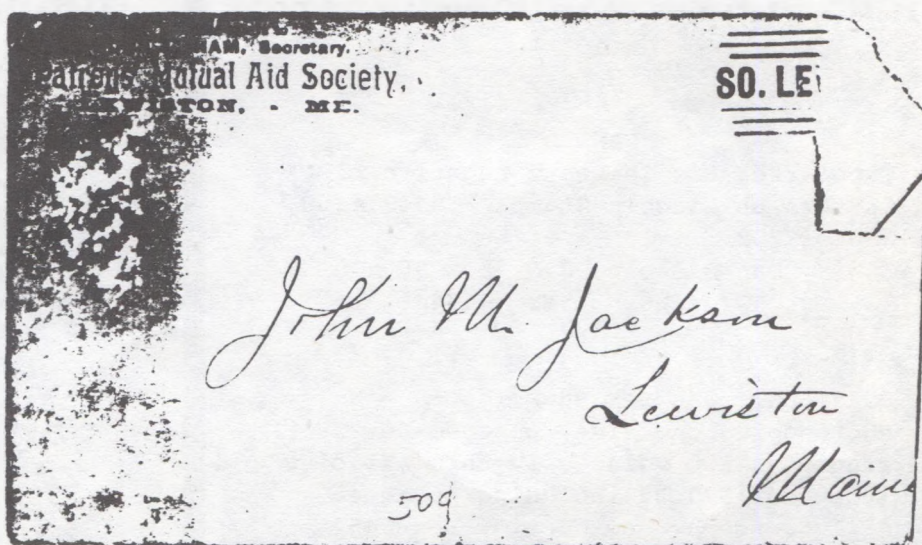 Secretary.
Mutual Aid Society,
LEWISTON, - ME.
SO. LE
John M. Jackson
Lewiston
Maine
509